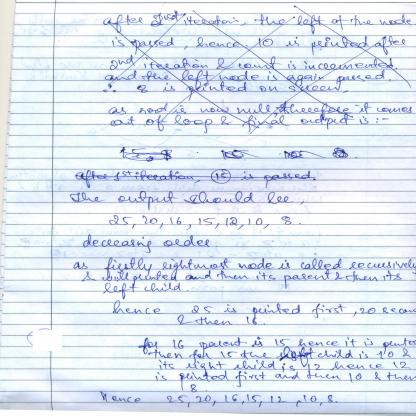 after 2nd iteration, the left of the node
is passed, hence 10 is printed after
2nd iteration & count is incremented
and the left node is again passed.
∴ 8 is printed on screen.
as root is now null therefore it comes
out of loop & final output is :-
after 1st iteration, (15) is passed.
The output should be,
25, 20, 16, 15, 12, 10, 8.
decreasing order
as firstly rightmost node is called recursively
& printed and then its parent & then its
left child.
hence 25 is printed first, 20 second
& then 16.
for 16 parent is 15 hence it is printed
then for 15 the left child is 10 &
its right child is 12 hence 12
is printed first and then 10 & then
8.
Hence 25, 20, 16, 15, 12, 10, 8.